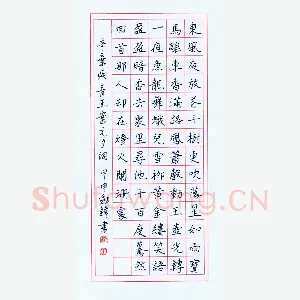 東風夜放花千樹更吹落星如雨寶
馬雕車香滿路鳳簫聲動玉壺光轉
一夜魚龍舞蛾兒雪柳黃金縷笑語
盈盈暗香去眾裏尋他千百度驀然
回首那人卻在燈火闌珊處
辛棄疾青玉案元夕詞 甲申 書
Shufawang.CN